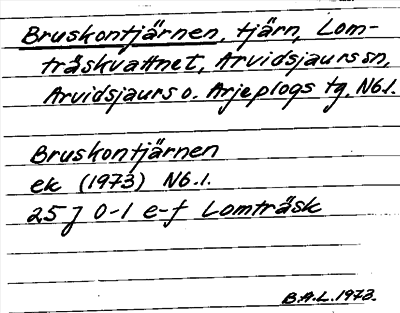 Bruskontjärnen, tjärn, Lom-
träskvattnet, Arvidsjaurs sn,
Arvidsjaurs o. Arjeplogs tg, Nb.l.
Bruskontjärnen
ek (1973) Nb.l.
25 J 0-1 e-f Lomträsk
B.A.L. 1973.